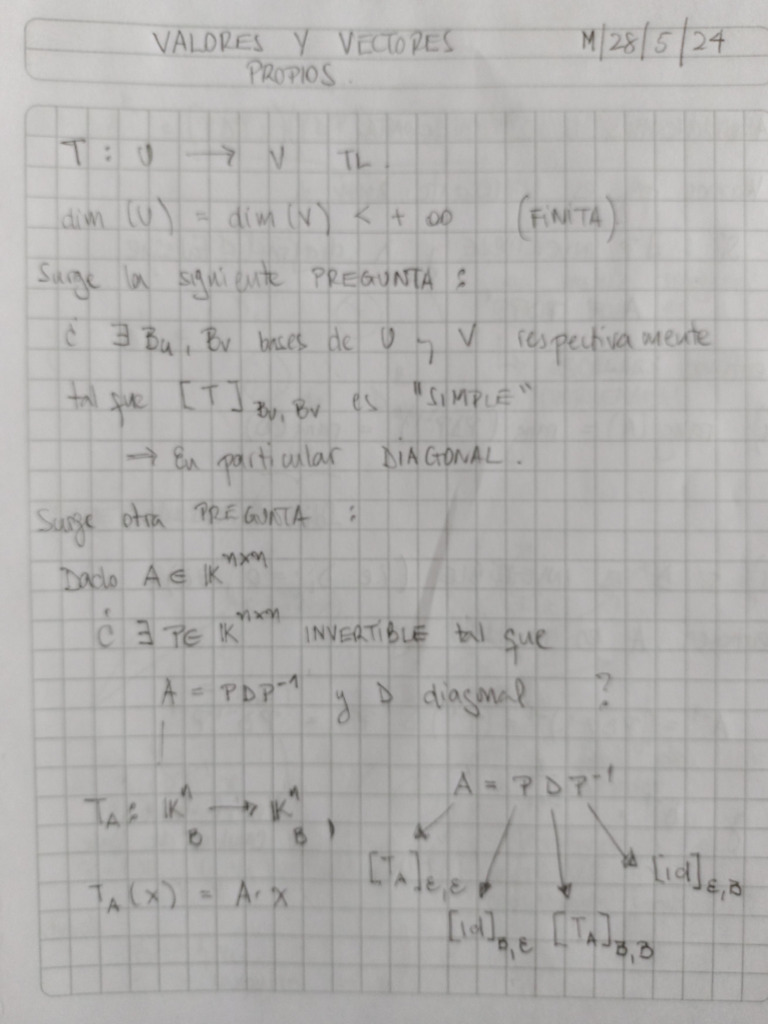 VALORES Y VECTORES M/28/5/24
PROPIOS.
T : U → V TL.
dim (U) = dim (V) < + ∞ (FINITA)
Surge la siguiente PREGUNTA :
¿ ∃ Bu, Bv bases de U y V respectivamente
tal que [T]Bu, Bv es "SIMPLE"
→ En particular DIAGONAL.
Surge otra PREGUNTA :
Dado A ∈ 𝕂^{n×n}
¿ ∃ P ∈ 𝕂^{n×n} INVERTIBLE tal que
A = PDP⁻¹ y D diagonal ?
A = P D P⁻¹
T_A : 𝕂ⁿ_B → 𝕂ⁿ_B ,
[T_A]_{ε,ε} [id]_{ε,B}
T_A(x) = A · x
[id]_{B,ε} [T_A]_{B,B}